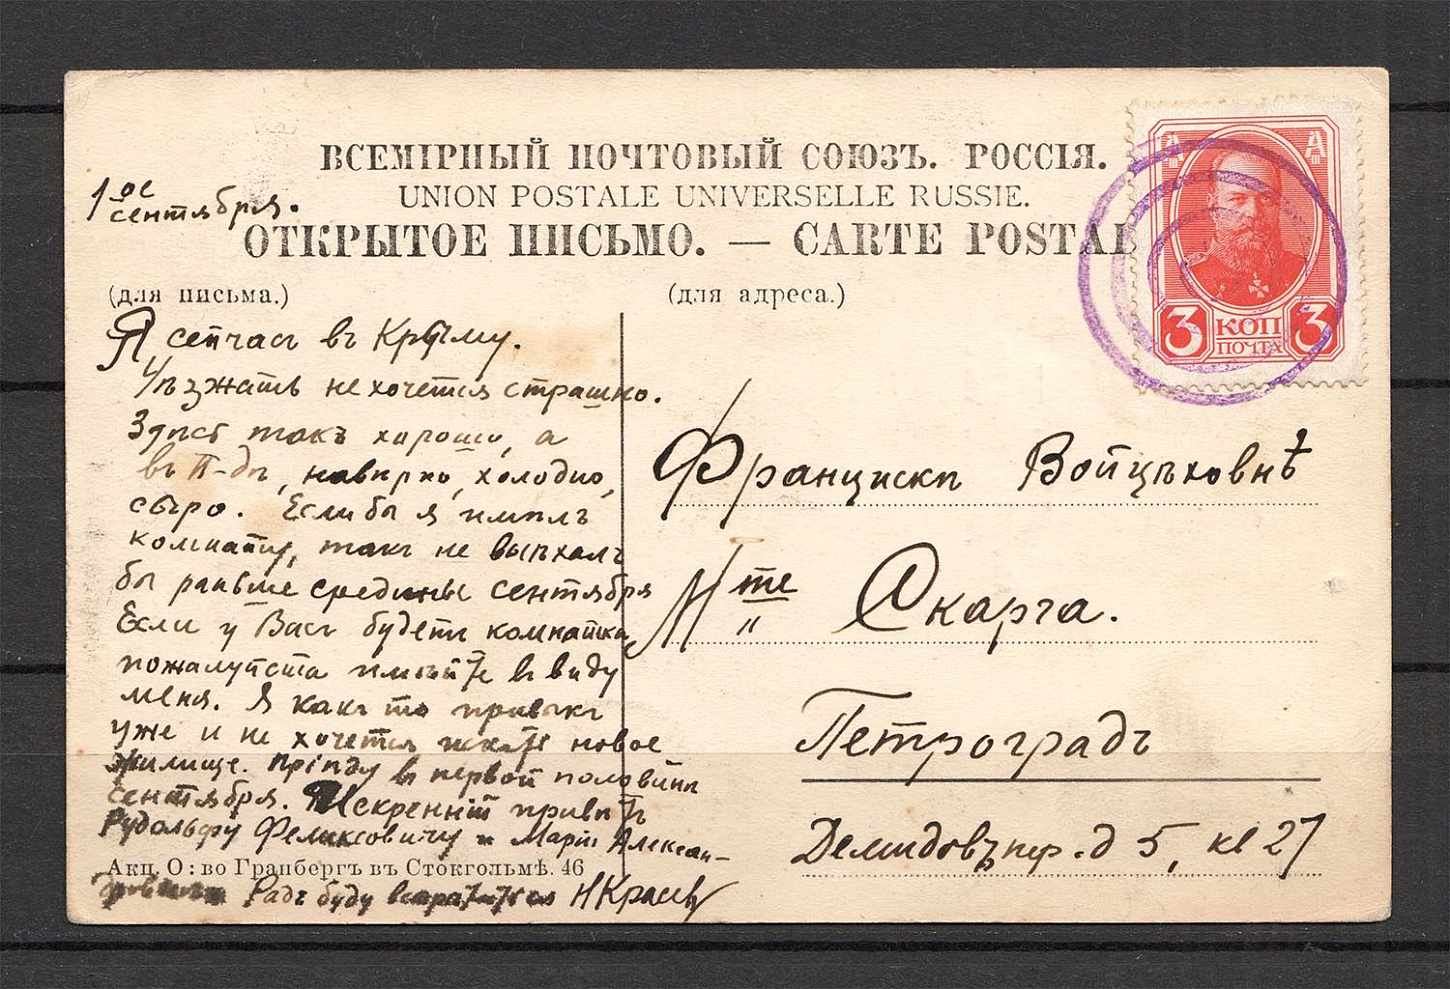 ВСЕМІРНЫЙ ПОЧТОВЫЙ СОЮЗЪ. РОССІЯ.
UNION POSTALE UNIVERSELLE RUSSIE.
ОТКРЫТОЕ ПИСЬМО. — CARTE POSTAL
1ое
сентября.
(для письма.)
Я сейчасъ въ Крыму.
Уѣзжать не хочется страшно.
Здѣсь такъ хорошо, а
въ П-дѣ, навѣрно, холодно,
сыро. Если бы я имѣлъ
комнату, такъ не выѣхалъ
бы раньше средины сентября
Если у Васъ будетъ комната,
пожалуйста имѣйте въ виду
меня. Я какъ то привыкъ
уже и не хочется искать новое
жилище. Пріѣду въ первой половинѣ
сентября. Искренній привѣтъ
Рудольфу Феликсовичу и Маріи Алексан-
Акц. О: во Гранбергъ въ Стокгольмѣ. 46
Радъ буду встрѣтиться
(для адреса.)
А А
3 КОП 3
ПОЧТА
Францискѣ Войцѣховнѣ
Mme Скарга.
Петроградъ
Демидовъ пер. д 5, кв 27